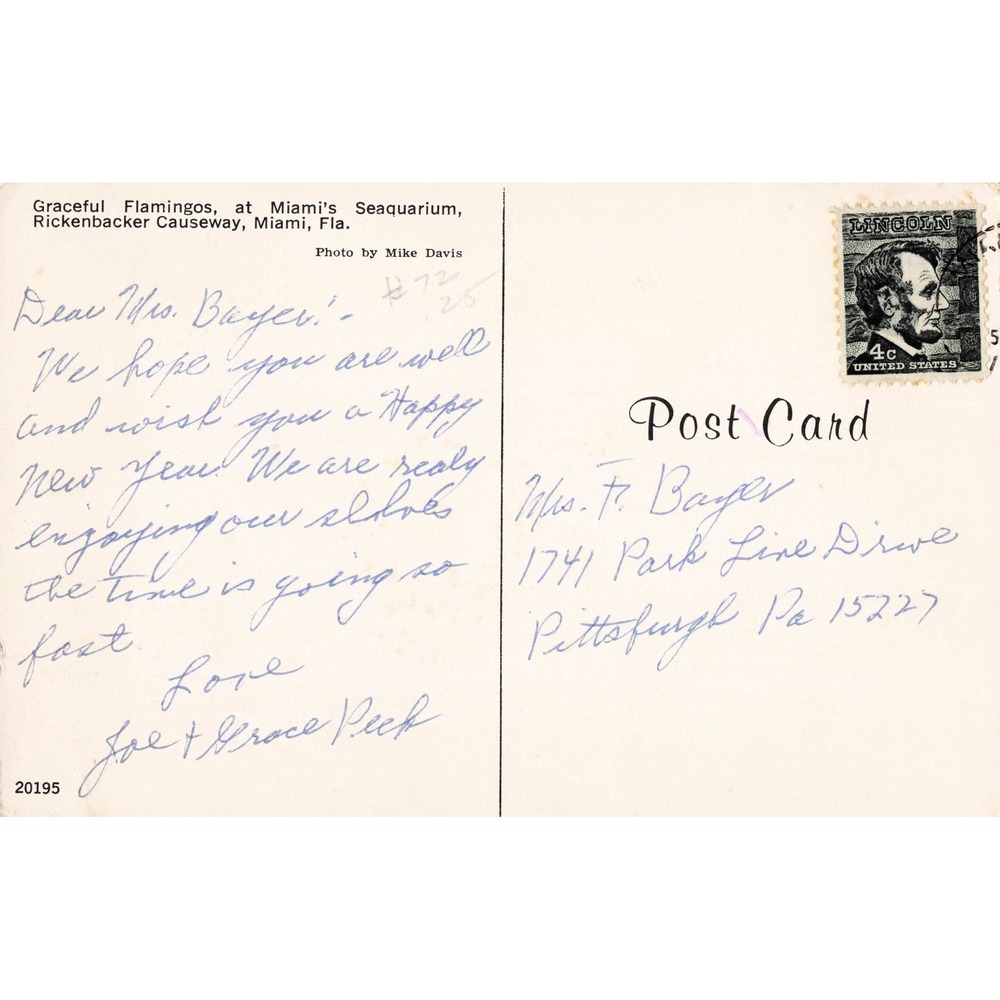 Graceful Flamingos, at Miami's Seaquarium,
Rickenbacker Causeway, Miami, Fla.
Photo by Mike Davis
#72
.25
Dear Mrs. Bayer:-
We hope you are well
and wish you a Happy
New Year. We are realy
enjoying our
the time is going so
fast.
Love
Joe + Grace Peck
20195
LINCOLN
4c
UNITED STATES
Post Card
Mrs. F. Bayer
1741 Park Line Drive
Pittsburgh Pa 15227